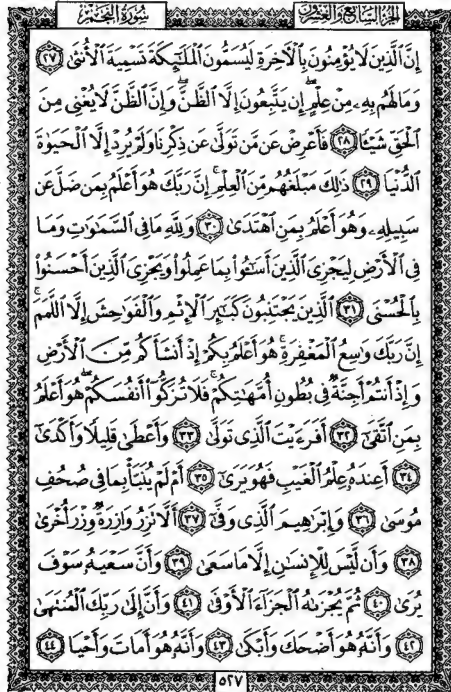 الجزء السابع والعشرون سورة النجم
إِنَّ ٱلَّذِينَ لَا يُؤْمِنُونَ بِٱلْآخِرَةِ لَيُسَمُّونَ ٱلْمَلَٰٓئِكَةَ تَسْمِيَةَ ٱلْأُنثَىٰ ٢٧
وَمَا لَهُم بِهِۦ مِنْ عِلْمٍ ۖ إِن يَتَّبِعُونَ إِلَّا ٱلظَّنَّ ۖ وَإِنَّ ٱلظَّنَّ لَا يُغْنِى مِنَ
ٱلْحَقِّ شَيْـًٔا ٢٨ فَأَعْرِضْ عَن مَّن تَوَلَّىٰ عَن ذِكْرِنَا وَلَمْ يُرِدْ إِلَّا ٱلْحَيَوٰةَ
ٱلدُّنْيَا ٢٩ ذَٰلِكَ مَبْلَغُهُم مِّنَ ٱلْعِلْمِ ۚ إِنَّ رَبَّكَ هُوَ أَعْلَمُ بِمَن ضَلَّ عَن
سَبِيلِهِۦ وَهُوَ أَعْلَمُ بِمَنِ ٱهْتَدَىٰ ٣٠ وَلِلَّهِ مَا فِى ٱلسَّمَٰوَٰتِ وَمَا
فِى ٱلْأَرْضِ لِيَجْزِىَ ٱلَّذِينَ أَسَٰٓـُٔوا۟ بِمَا عَمِلُوا۟ وَيَجْزِىَ ٱلَّذِينَ أَحْسَنُوا۟
بِٱلْحُسْنَى ٣١ ٱلَّذِينَ يَجْتَنِبُونَ كَبَٰٓئِرَ ٱلْإِثْمِ وَٱلْفَوَٰحِشَ إِلَّا ٱللَّمَمَ ۚ
إِنَّ رَبَّكَ وَٰسِعُ ٱلْمَغْفِرَةِ ۚ هُوَ أَعْلَمُ بِكُمْ إِذْ أَنشَأَكُم مِّنَ ٱلْأَرْضِ
وَإِذْ أَنتُمْ أَجِنَّةٌ فِى بُطُونِ أُمَّهَٰتِكُمْ ۖ فَلَا تُزَكُّوٓا۟ أَنفُسَكُمْ ۖ هُوَ أَعْلَمُ
بِمَنِ ٱتَّقَىٰٓ ٣٢ أَفَرَءَيْتَ ٱلَّذِى تَوَلَّىٰ ٣٣ وَأَعْطَىٰ قَلِيلًا وَأَكْدَىٰٓ
٣٤ أَعِندَهُۥ عِلْمُ ٱلْغَيْبِ فَهُوَ يَرَىٰٓ ٣٥ أَمْ لَمْ يُنَبَّأْ بِمَا فِى صُحُفِ
مُوسَىٰ ٣٦ وَإِبْرَٰهِيمَ ٱلَّذِى وَفَّىٰٓ ٣٧ أَلَّا تَزِرُ وَازِرَةٌ وِزْرَ أُخْرَىٰ
٣٨ وَأَن لَّيْسَ لِلْإِنسَٰنِ إِلَّا مَا سَعَىٰ ٣٩ وَأَنَّ سَعْيَهُۥ سَوْفَ
يُرَىٰ ٤٠ ثُمَّ يُجْزَىٰهُ ٱلْجَزَآءَ ٱلْأَوْفَىٰ ٤١ وَأَنَّ إِلَىٰ رَبِّكَ ٱلْمُنتَهَىٰ
٤٢ وَأَنَّهُۥ هُوَ أَضْحَكَ وَأَبْكَىٰ ٤٣ وَأَنَّهُۥ هُوَ أَمَاتَ وَأَحْيَا ٤٤
٥٢٧